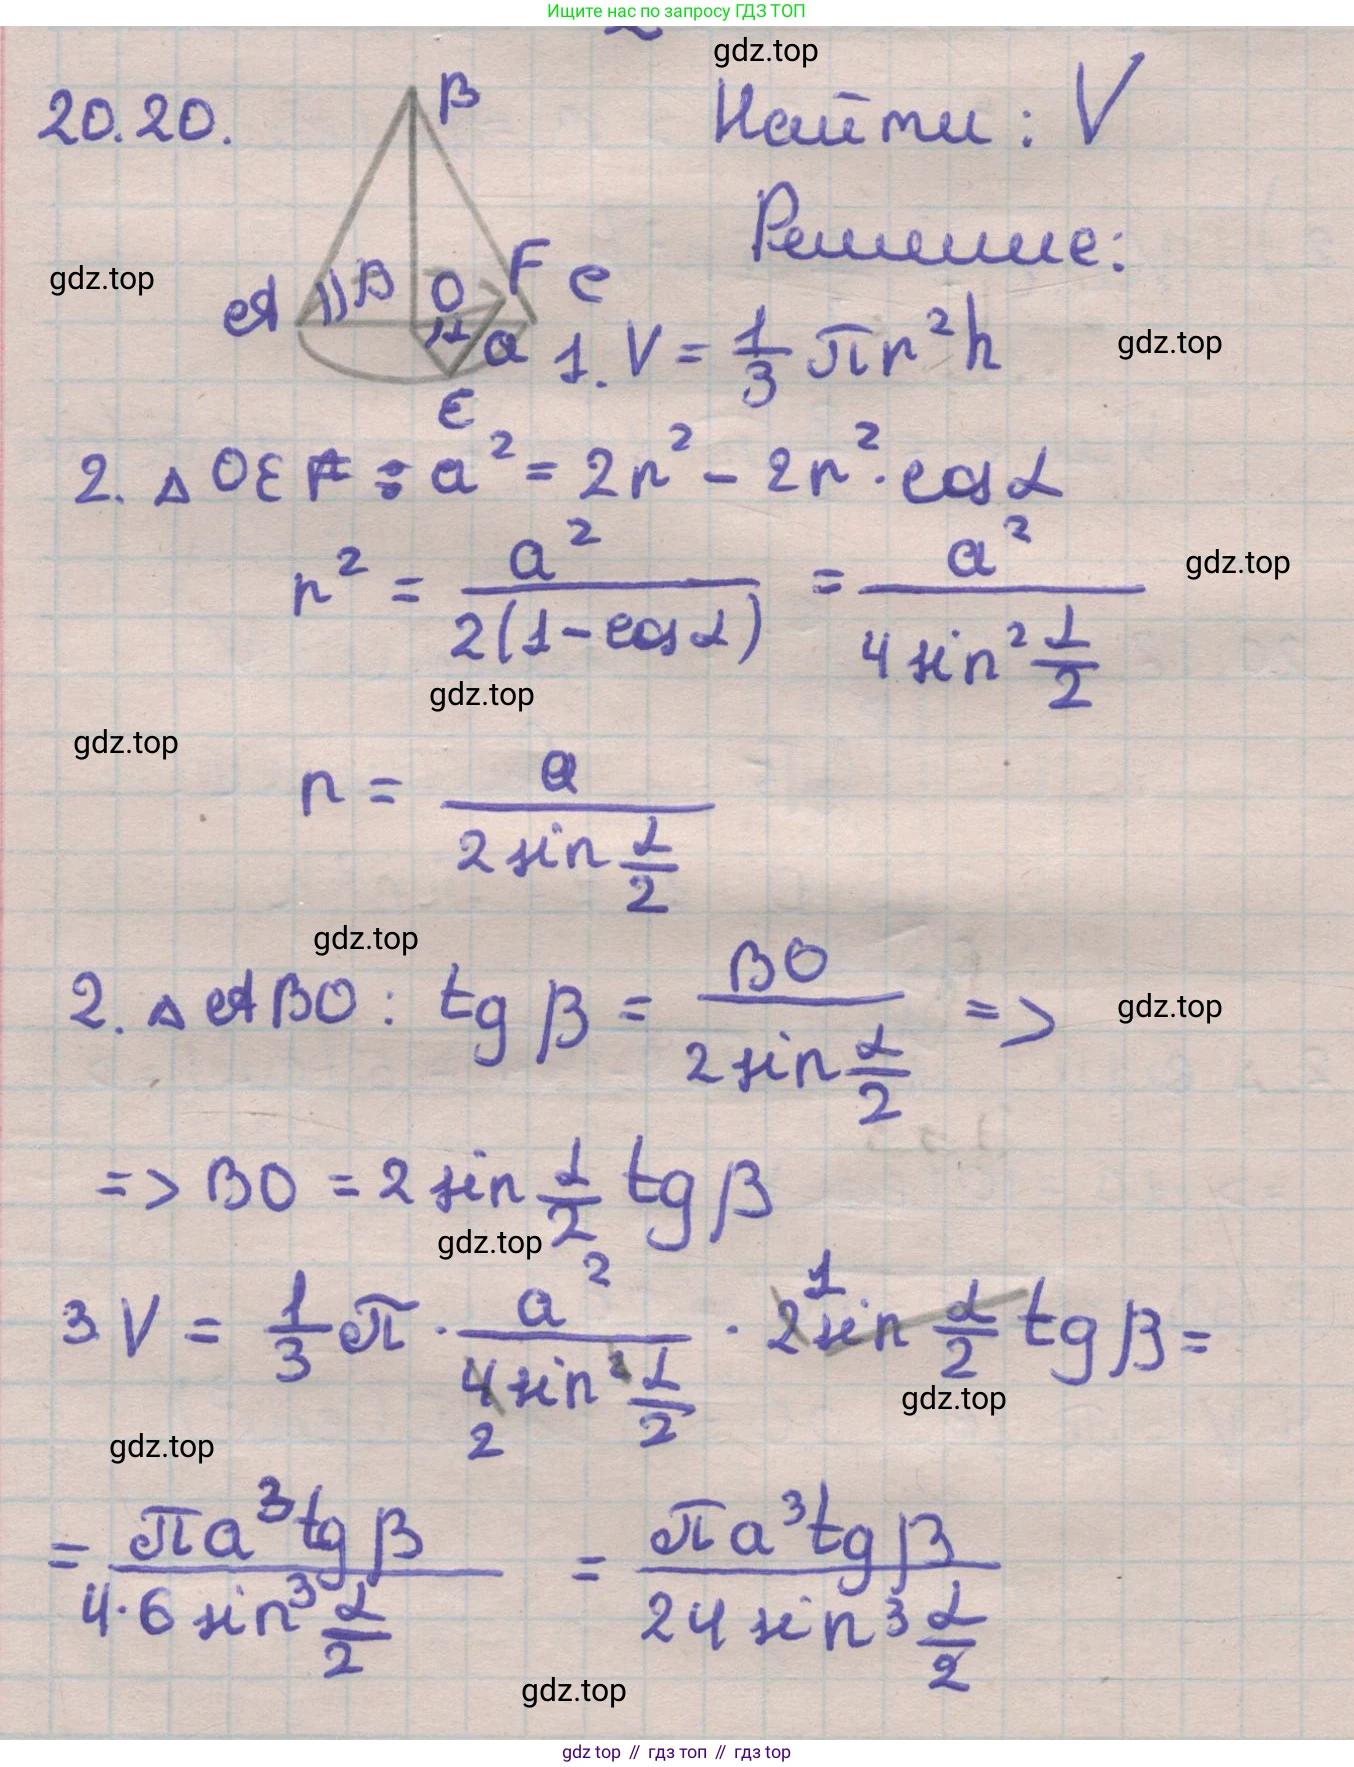 Ищите нас по запросу ГДЗ ТОП
gdz.top
20.20.
B
Найти: V
Решение:
gdz.top
gdz.top
A β O F C
α a
E
1. V = 1/3 πr²h
gdz.top
2. △ OEF : a² = 2r² - 2r² · cos α
r² = a² / 2(1 - cos α) = a² / 4 sin² α/2
gdz.top
gdz.top
gdz.top
r = a / 2 sin α/2
gdz.top
2. △ ABO : tg β = BO / 2 sin α/2 =>
gdz.top
=> BO = 2 sin α/2 tg β
gdz.top
3. V = 1/3 π · a² / 4 sin² α/2 · 2 sin α/2 tg β =
1
2
gdz.top
gdz.top
= πa³ tg β / 4·6 sin³ α/2 = πa³ tg β / 24 sin³ α/2
gdz.top
gdz top // гдз топ // гдз top